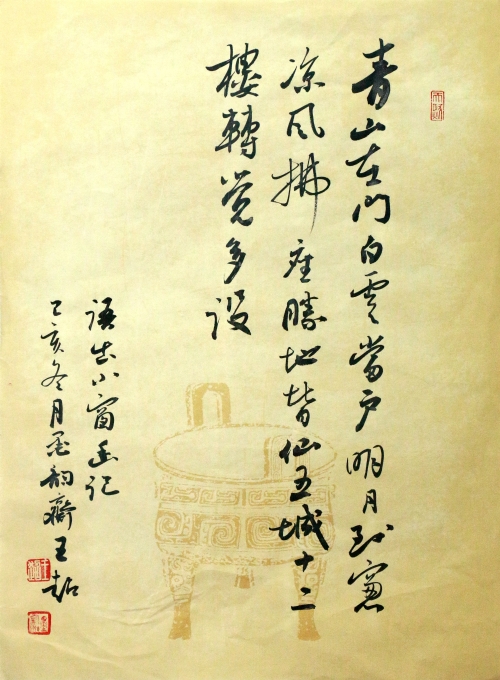 青山在門白雲當戶明月到窗
涼風拂座勝地皆仙五城十二
樓轉覺多設
語出小窗幽記
乙亥冬月墨韵齋王喆